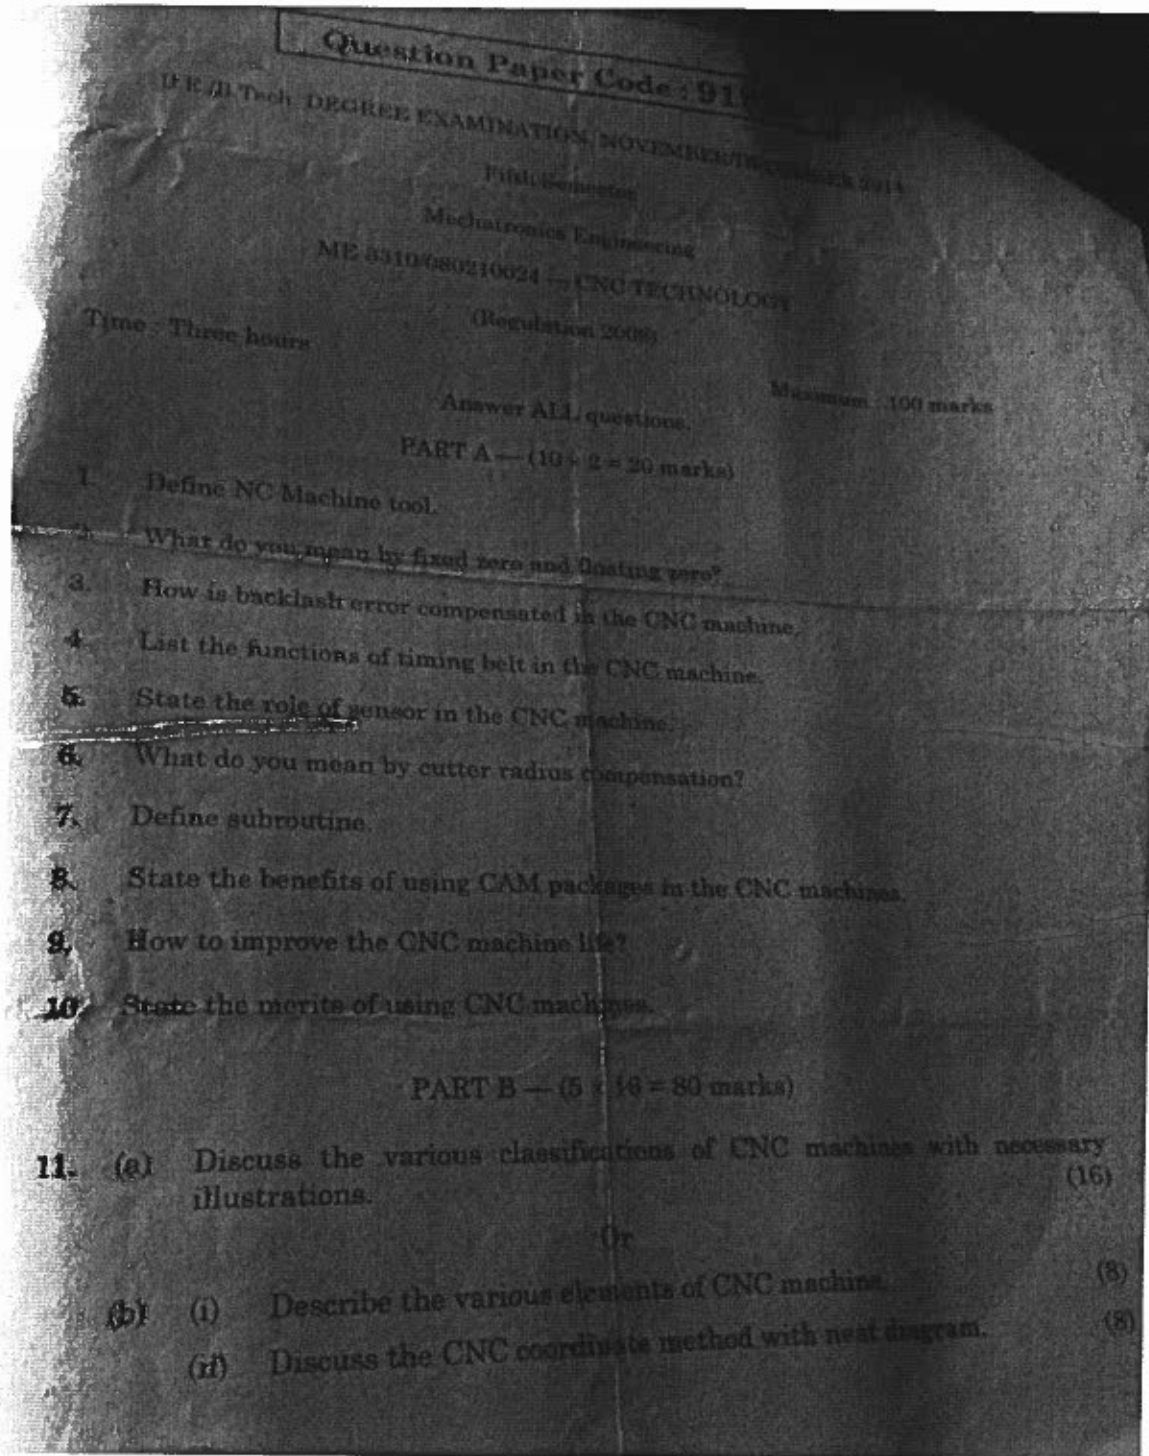 Question Paper Code : 91
B.E./B.Tech. DEGREE EXAMINATION, NOVEMBER/DECEMBER 2014
Fifth Semester
Mechatronics Engineering
ME 3310/080210024 — CNC TECHNOLOGY
(Regulation 2008)
Time : Three hours
Maximum : 100 marks
Answer ALL questions.
PART A — (10 × 2 = 20 marks)
1. Define NC Machine tool.
2. What do you mean by fixed zero and floating zero?
3. How is backlash error compensated in the CNC machine.
4. List the functions of timing belt in the CNC machine.
5. State the role of sensor in the CNC machine.
6. What do you mean by cutter radius compensation?
7. Define subroutine.
8. State the benefits of using CAM packages in the CNC machines.
9. How to improve the CNC machine life?
10. State the merits of using CNC machines.
PART B — (5 × 16 = 80 marks)
11. (a) Discuss the various classifications of CNC machines with necessary
illustrations. (16)
Or
(b) (i) Describe the various elements of CNC machine. (8)
(ii) Discuss the CNC coordinate method with neat diagram. (8)